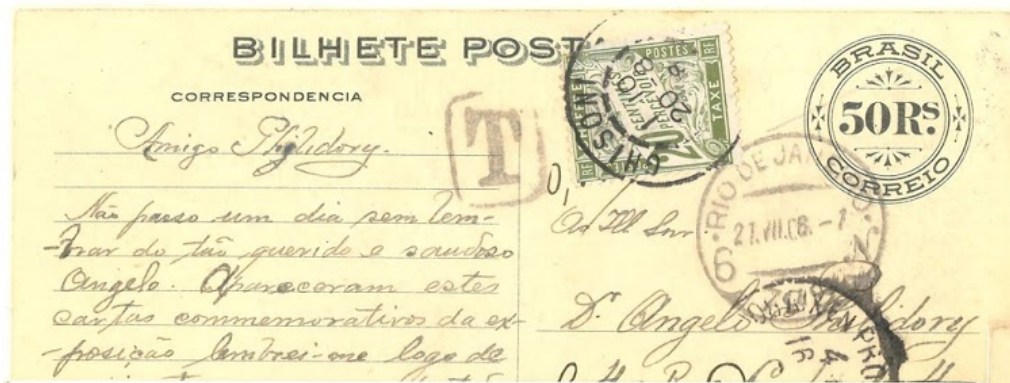 BILHETE POST
CORRESPONDENCIA
Amigo Philidory.
Não passo um dia sem lem-
-brar do tão querido e saudoso
Angelo. Appareceram estes
cartas commemorativos da ex-
-posição lembrei-me logo de
T
POSTES
RF
TAXE
20
GHISONI
20
8
BRASIL
50 RS.
CORREIO
RIO DE JAN
21.VII.08.-1
6
Ao Ill Snr
Dr Angelo Philidory